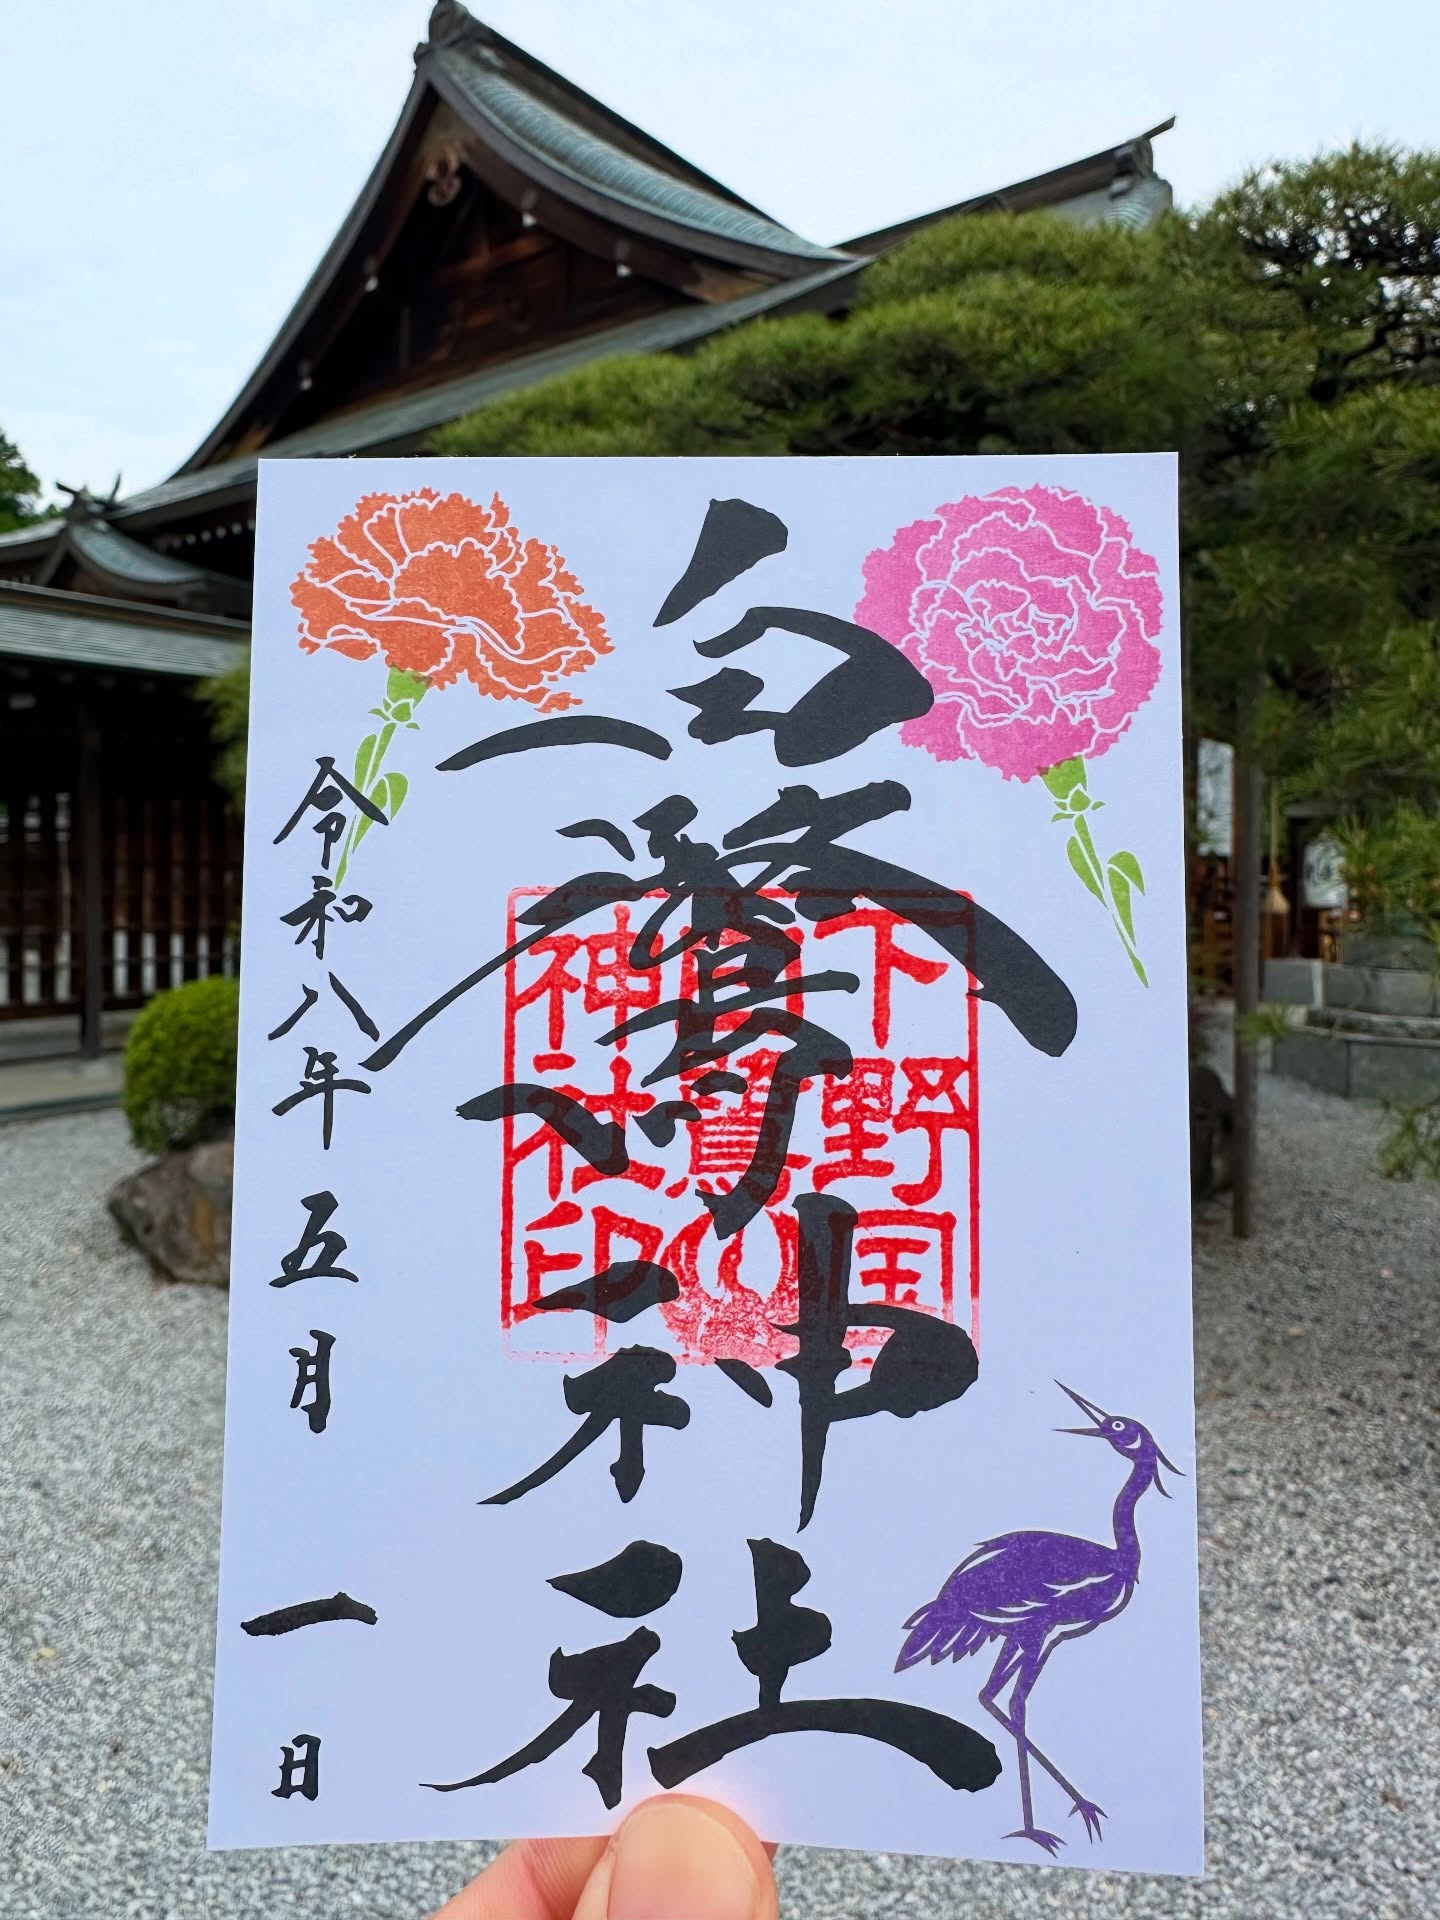 白鷺神社
下野国
白鷺
神社印
令和八年五月一日